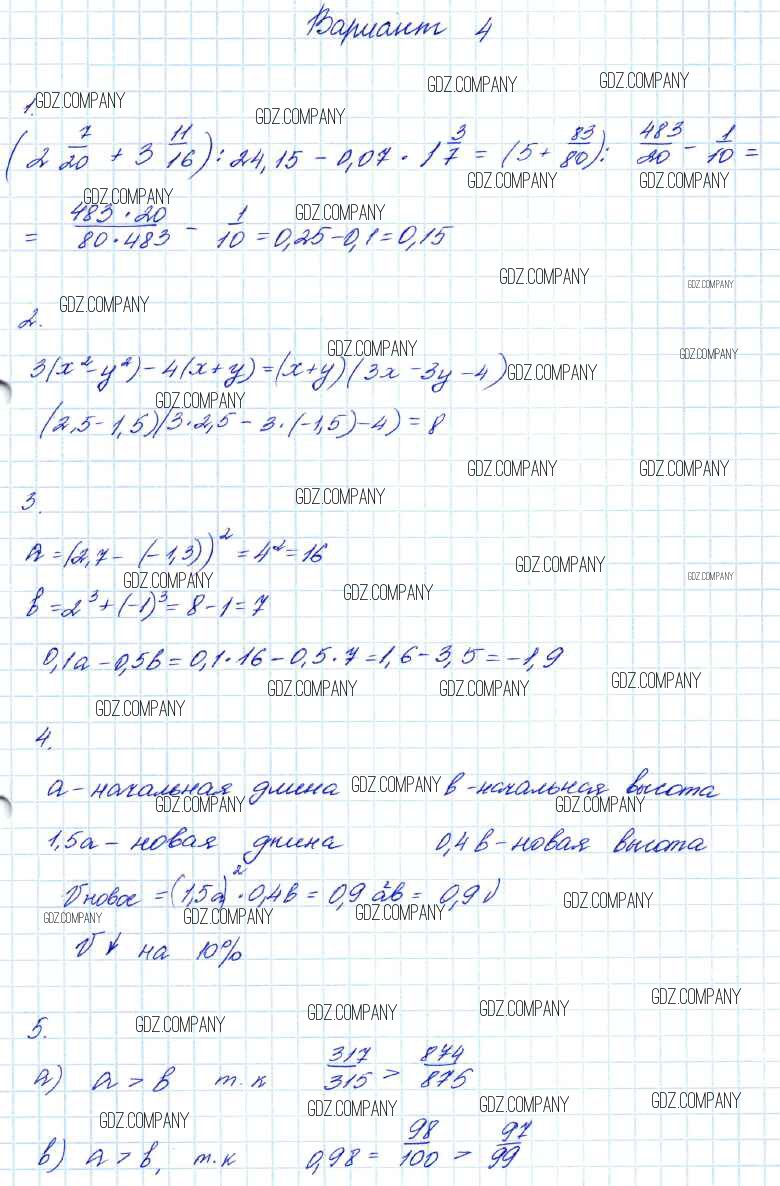 Вариант 4
GDZ.COMPANY GDZ.COMPANY
1. GDZ.COMPANY GDZ.COMPANY
(2 7/20 + 3 11/16) : 24,15 - 0,07 · 1 3/7 = (5 + 83/80) : 483/20 - 1/10 =
GDZ.COMPANY GDZ.COMPANY GDZ.COMPANY GDZ.COMPANY
= 483·20/80·483 - 1/10 = 0,25 - 0,1 = 0,15
GDZ.COMPANY GDZ.COMPANY
2. GDZ.COMPANY
GDZ.COMPANY GDZ.COMPANY
3(x² - y²) - 4(x + y) = (x + y)(3x - 3y - 4) GDZ.COMPANY
GDZ.COMPANY
(2,5 - 1,5)(3·2,5 - 3·(-1,5) - 4) = 8
GDZ.COMPANY GDZ.COMPANY
3. GDZ.COMPANY
a = (2,7 - (-1,3))² = 4² = 16 GDZ.COMPANY
GDZ.COMPANY GDZ.COMPANY GDZ.COMPANY
b = 2³ + (-1)³ = 8 - 1 = 7
0,1a - 0,5b = 0,1·16 - 0,5·7 = 1,6 - 3,5 = -1,9
GDZ.COMPANY GDZ.COMPANY GDZ.COMPANY
GDZ.COMPANY
4.
a - начальная длина GDZ.COMPANY b - начальная высота
GDZ.COMPANY GDZ.COMPANY
1,5a - новая длина 0,4b - новая высота
V новое = (1,5a)² · 0,4b = 0,9 a²b = 0,9V GDZ.COMPANY
GDZ.COMPANY GDZ.COMPANY GDZ.COMPANY
V ↓ на 10%
GDZ.COMPANY GDZ.COMPANY GDZ.COMPANY GDZ.COMPANY
5.
a) a > b т.к 317/315 > 874/875
GDZ.COMPANY GDZ.COMPANY GDZ.COMPANY GDZ.COMPANY
b) a > b, т.к 0,98 = 98/100 > 97/99